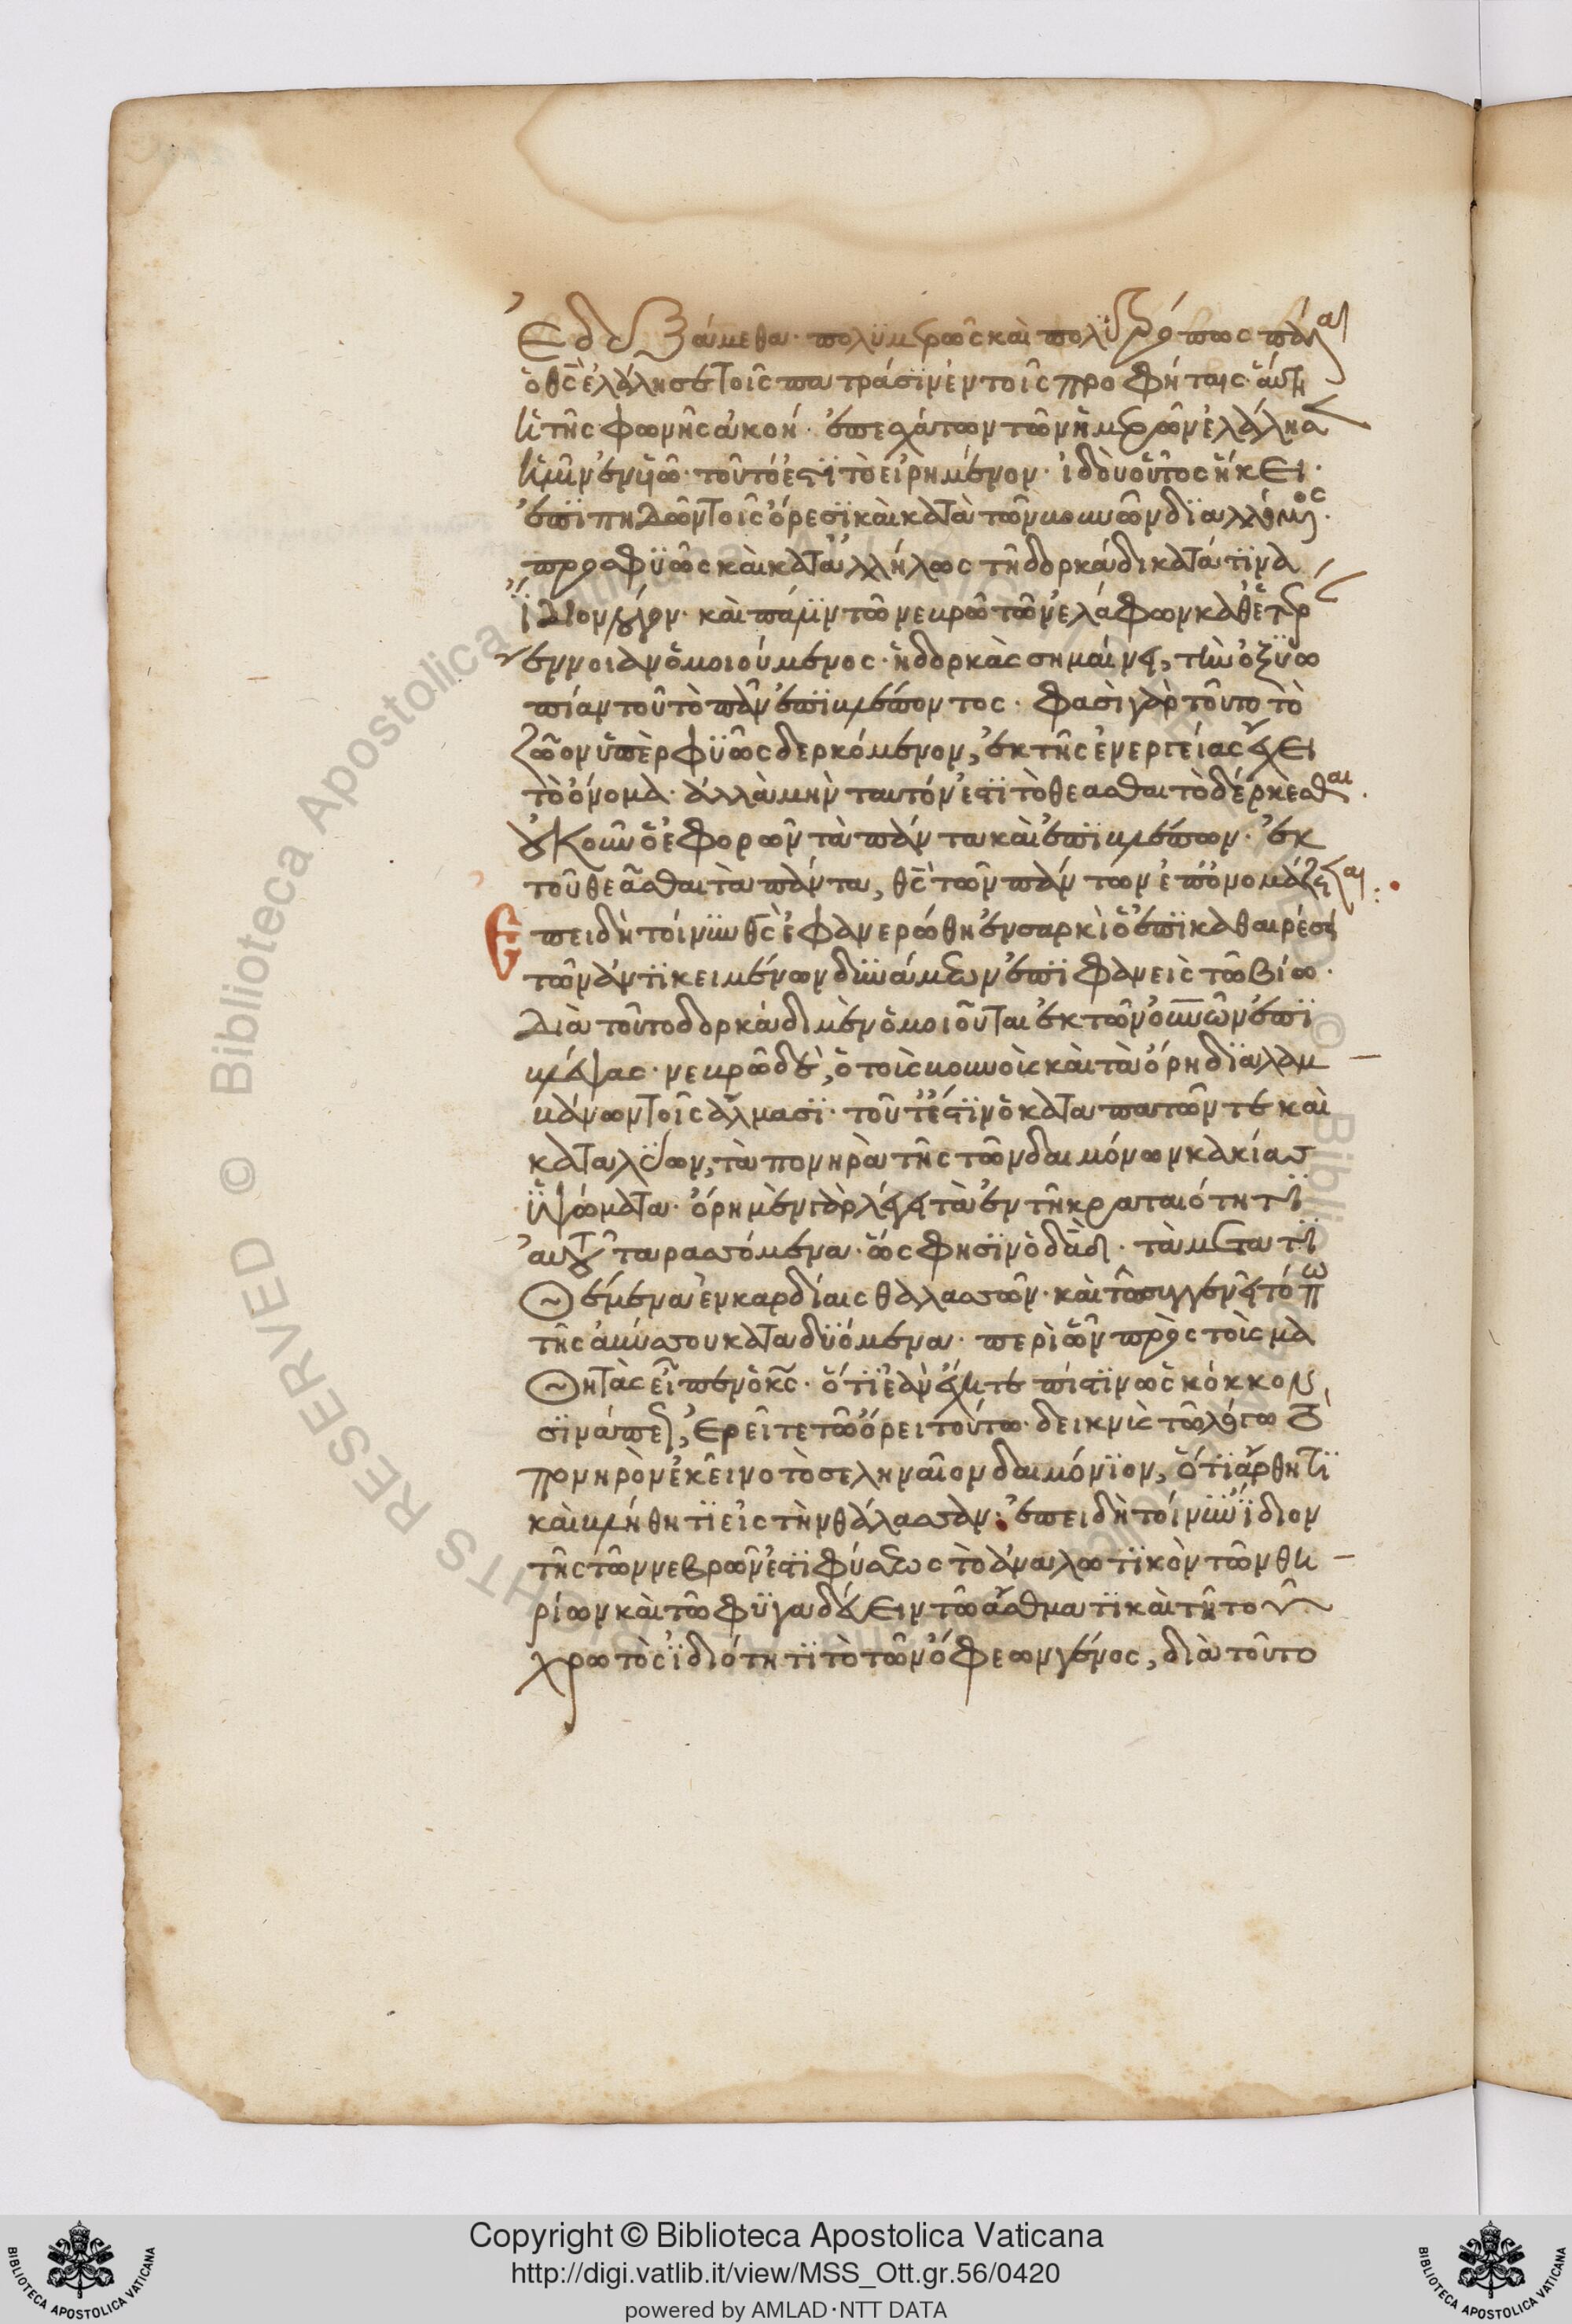 ἐδεξάμεθα· πολυμερῶς καὶ πολυτρόπως πάλαι
ὁ θς ἐλάλησε τοῖς πατράσιν ἐν τοῖς προφήταις· αὕτη
ἡ τῆς φωνῆς ἀκοή· ἐπεσχάτων τῶν ἡμερῶν ἐλάλησ
ἡμῖν ἐν υἱῶ· τοῦτό ἐστι τὸ εἰρημένον· ἰδοὺ οὗτος ἥκει·
ἐπιπηδῶν τοῖς ὄρεσι καὶ κατὰ τῶν βουνῶν διαλλόμενος·
προσφυῶς καὶ καταλλήλως τῆ δορκάδι κατά τινα
ἴδιον λόγον· καὶ πάλιν τῶ νεβρῶ τῶν ἐλάφων καθ' ἑτέρ
ἔννοιαν ὁμοιούμενος· ἡ δορκὰς σημαίνει, τὴν ὀξυω
πίαν τοῦ τὸ πᾶν ἐπιβλέποντος· φασὶ γὰρ τοῦτο τὸ
ζῶον ὑπερφυῶς δερκόμενον, ἐκ τῆς ἐνεργείας ἔχει
τὸ ὄνομα· ἀλλὰ μὴν ταυτόν ἐστι τὸ θεᾶσθαι τὸ δέρκεσθαι·
οὐκοῦν ὁ ἐφορῶν τὰ πάντα καὶ ἐπιβλέπων· ἐκ
τοῦ θεᾶσθαι τὰ πάντα, θς τῶν πάντων ἐπονομάζεται:
Ἐπειδὴ τοίνυν θς ἐφανερώθη ἐν σαρκὶ ὁ ἐπὶ καθαιρέσει
τῶν ἀντικειμένων δυνάμεων ἐπιφανεὶς τῶ βίω·
διὰ τοῦτο δορκάδι μὲν ὁμοιοῦται ἐκ τῶν οὐνῶν ἐπι
βλέψας· νεβρῶ δὲ, ὁ τοὺς βουνοὺς καὶ τὰ ὄρη διαλαμ
βάνων τοῖς ἅλμασι· τουτέστιν ὁ καταπατῶν τε καὶ
καταλύων, τὰ πονηρὰ τῆς τῶν δαιμόνων κακίας
ὑψώματα· ὄρη μὲν γὰρ λέγει τὰ ἐν τῆ κραταιότητι
αὐτοῦ ταρασσόμενα· ὥς φησιν ὁ δαδ· τὰ μετατι
θέμενα ἐν καρδίαις θαλασσῶν· καὶ τῶ συγγενεῖ τόπω
τῆς ἀβύσσου καταδυόμενα· περὶ ὧν πρὸς τοὺς μα
θητὰς εἶπεν ὁ κς· ὅτι ἐὰν ἔχητε πίστιν ὡς κόκκον
σινάπεως, ἐρεῖτε τῶ ὄρει τούτω· δεικνὺς τῶ λόγω τὸ
πονηρὸν ἐκεῖνο τὸ σεληναῖον δαιμόνιον, ὅτι ἄρθητι
καὶ βλήθητι εἰς τὴν θάλασσαν· ἐπειδὴ τοίνυν ἴδιον
τῆς τῶν νεβρῶν ἐστι φύσεως τὸ ἀναλωτικὸν τῶν θη
ρίων καὶ τῶ φυγαδεύειν τῶ ἄσθματι καὶ τῆ τοῦ
χρωτὸς ἰδιότητι τὸ τῶν ὄφεων γένος, διὰ τοῦτο
Copyright © Biblioteca Apostolica Vaticana
http://digi.vatlib.it/view/MSS_Ott.gr.56/0420
powered by AMLAD·NTT DATA